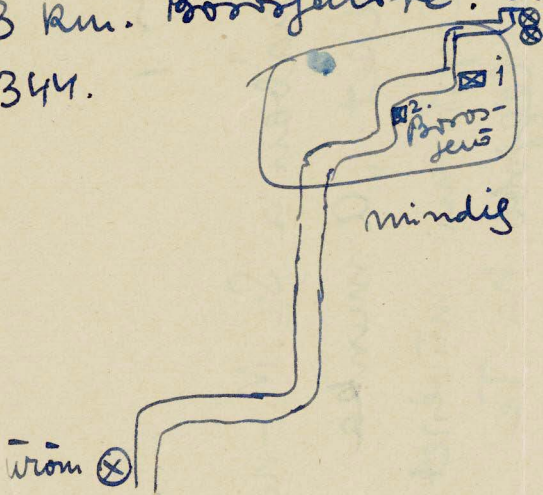 3 km. Borosjenőre.
344.
1
2.
Boros-
jenő
mindig
üröm